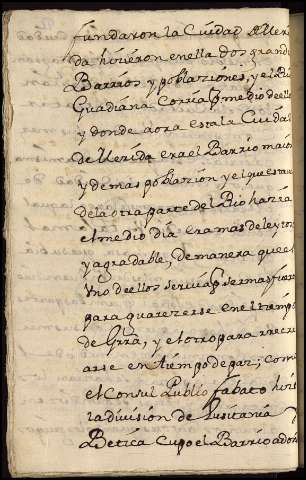 fundaron la Ciudad de Meri
da hizieron en ella dos grand
Barrios y poblaziones, y el Rio
Guadiana Corria p medio de ell
y donde aora esta la Ciudad
de Merida era el Barrio maior
y de mas poblazion y el que estaua
de la otra parte del Rio hazia
el medio dia era mas deleytoso
y agradable, de manera que el
Vno de ellos seruia p ser mas fuerte
para guarezerse en el tiempo
de Grra, y el otro para rrecre
arse en tiempo de paz; como
el Consul Publio fabato hizi
la diuision de Lusitania
Betica Cupo el Barrio adon